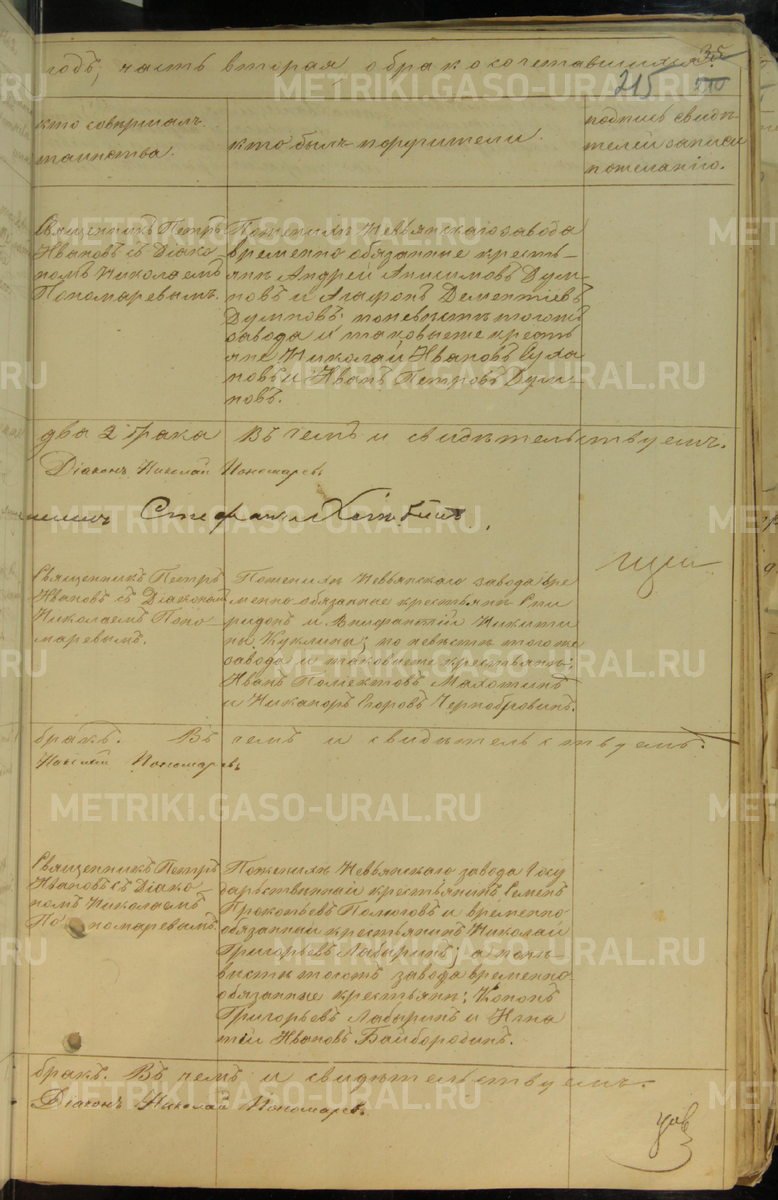 годъ, часть вторая о бракосочетавшихся
215
кто совершалъ
таинства.
кто былъ поручители.
подпись свидѣ-
телей записи
по желанію.
Священникъ Петръ
Ивановъ съ Діако-
номъ Николаемъ
Пономаревымъ.
По женихѣ Невьянскаго завода
временно обязанные кресть-
яне Андрей Анисимовъ Дум-
новъ и Агафонъ Дементіевъ
Думновъ; по невѣстѣ тогожъ
завода и таковыеже кресть
яне Николай Ивановъ Суха
новъ и Иванъ Петровъ Дум-
новъ.
два 2 брака Въ чемъ и свидѣтельствуемъ.
Діаконъ Николай Пономаревъ
Стефанъ
Священникъ Петръ
Ивановъ съ Діакономъ
Николаемъ Поно
маревымъ.
По женихѣ Невьянскаго завода вре
менно обязанные крестьяне Спи
ридонъ и Епифантій Никити
ны Куклины; по невѣстѣ тогоже
завода и таковыеже крестьяне:
Иванъ Полиектовъ Махотинъ
и Никаноръ Егоровъ Чернобровинъ.
бракъ. Въ чемъ и свидѣтельствуемъ.
Николай Пономаревъ
Священникъ Петръ
Ивановъ съ Діако-
номъ Николаемъ
Пономаревымъ.
По женихѣ Невьянскаго завода Госу
дарственный крестьянинъ Семенъ
Прокопьевъ Полюговъ и временно
обязанный крестьянинъ Николай
Григорьевъ Лабыринъ; а по не-
вѣстѣ тогожъ завода временно-
обязанные крестьяне: Кононъ
Григорьевъ Лабыринъ и Игна
тій Ивановъ Байбородинъ.
бракъ. Въ чемъ и свидѣтельствуемъ.
Діаконъ Николай Пономаревъ
METRIKI.GASO-URAL.RU